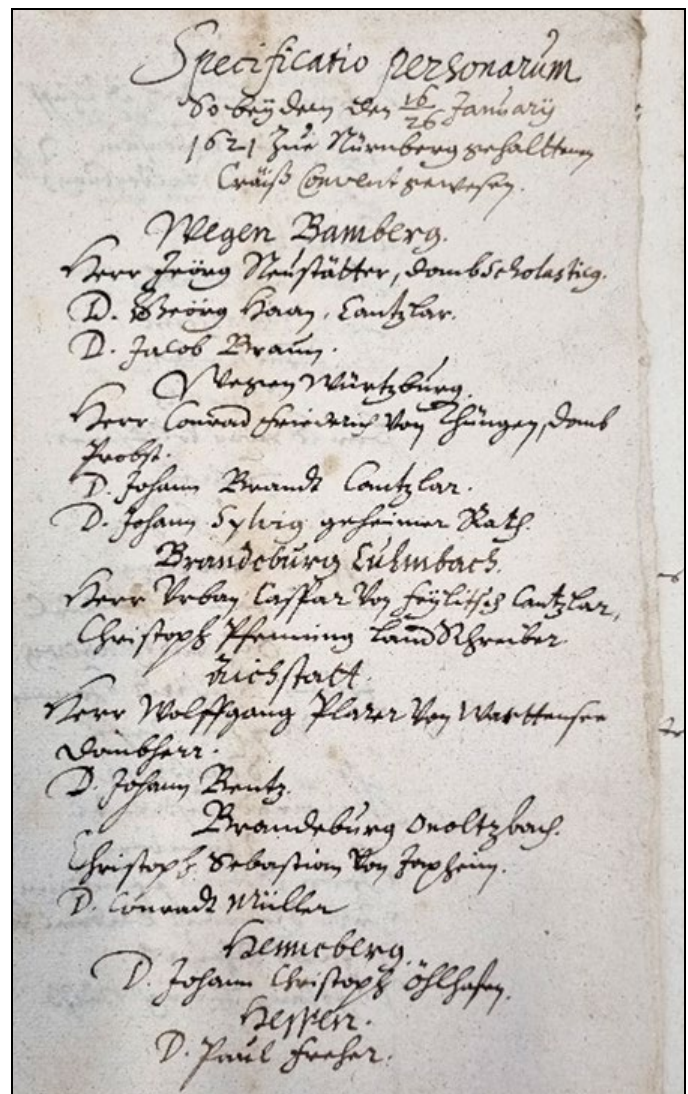 Specificatio personarum
So beÿ dem den 16/26 Januarÿ
1621 Zue Nürnberg gehalttenen
Craiß Convent gewesen.
Wegen Bamberg.
Herr Jeörg Neustätter, Dombscholasticg.
D. Georg Haan, Cantzlar.
D. Jacob Braun.
Wegen Würtzburg.
Herr Conrad Friederich von Thüngen, Domb
Probst.
D. Johann Brandt Cantzlar.
D. Johann geheimer Rath.
Brandeburg Culmbach.
Herr Vrban Caspar von Feÿlitsch Cantzlar,
Christoph Pfenning LandSchreiber
Aichstatt.
Herr Wolffgang Plarer von Warttensee
Dombherr.
D. Johann Rentz.
Brandeburg Onoltzbach.
Christoph Sebastian von Jaxheim.
D. Conradt Müller
Henneberg.
D. Johann Christoph Öhlhafen.
Hessen.
D. Paul Freher.